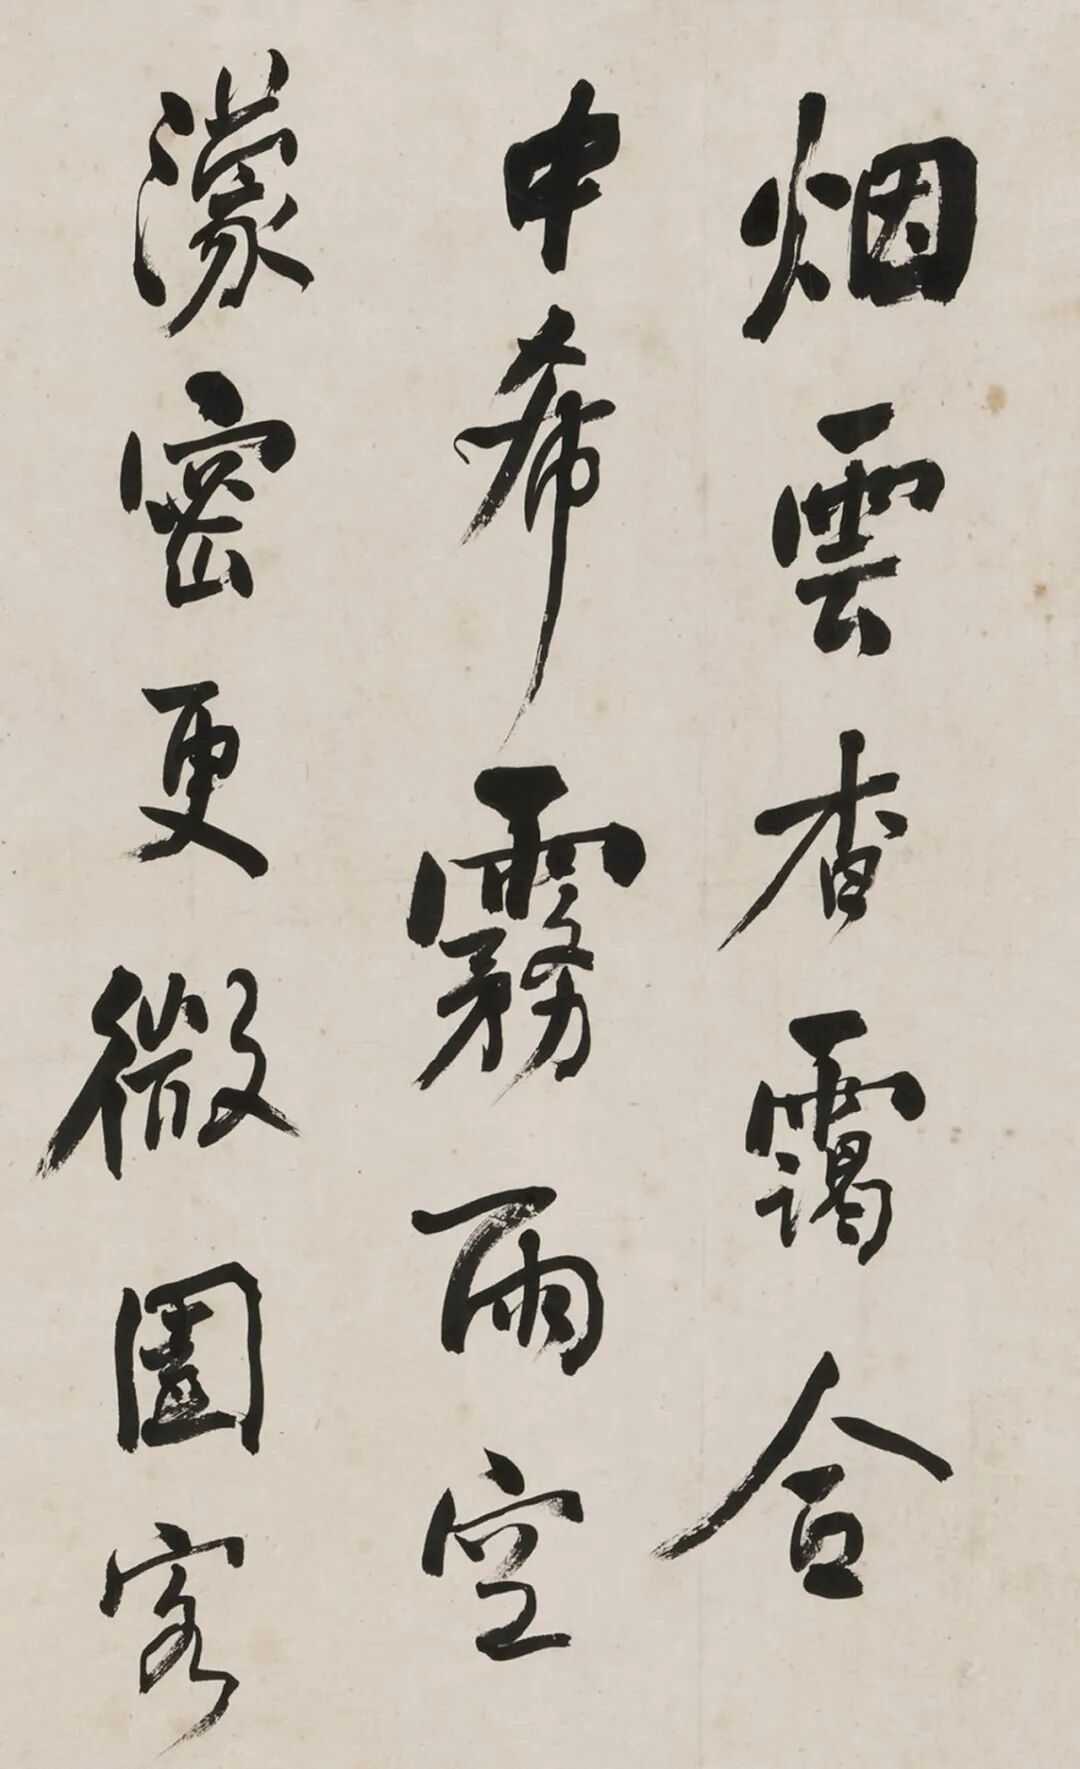 烟雲杳靄合
中希霧雨空
濛密更微園客